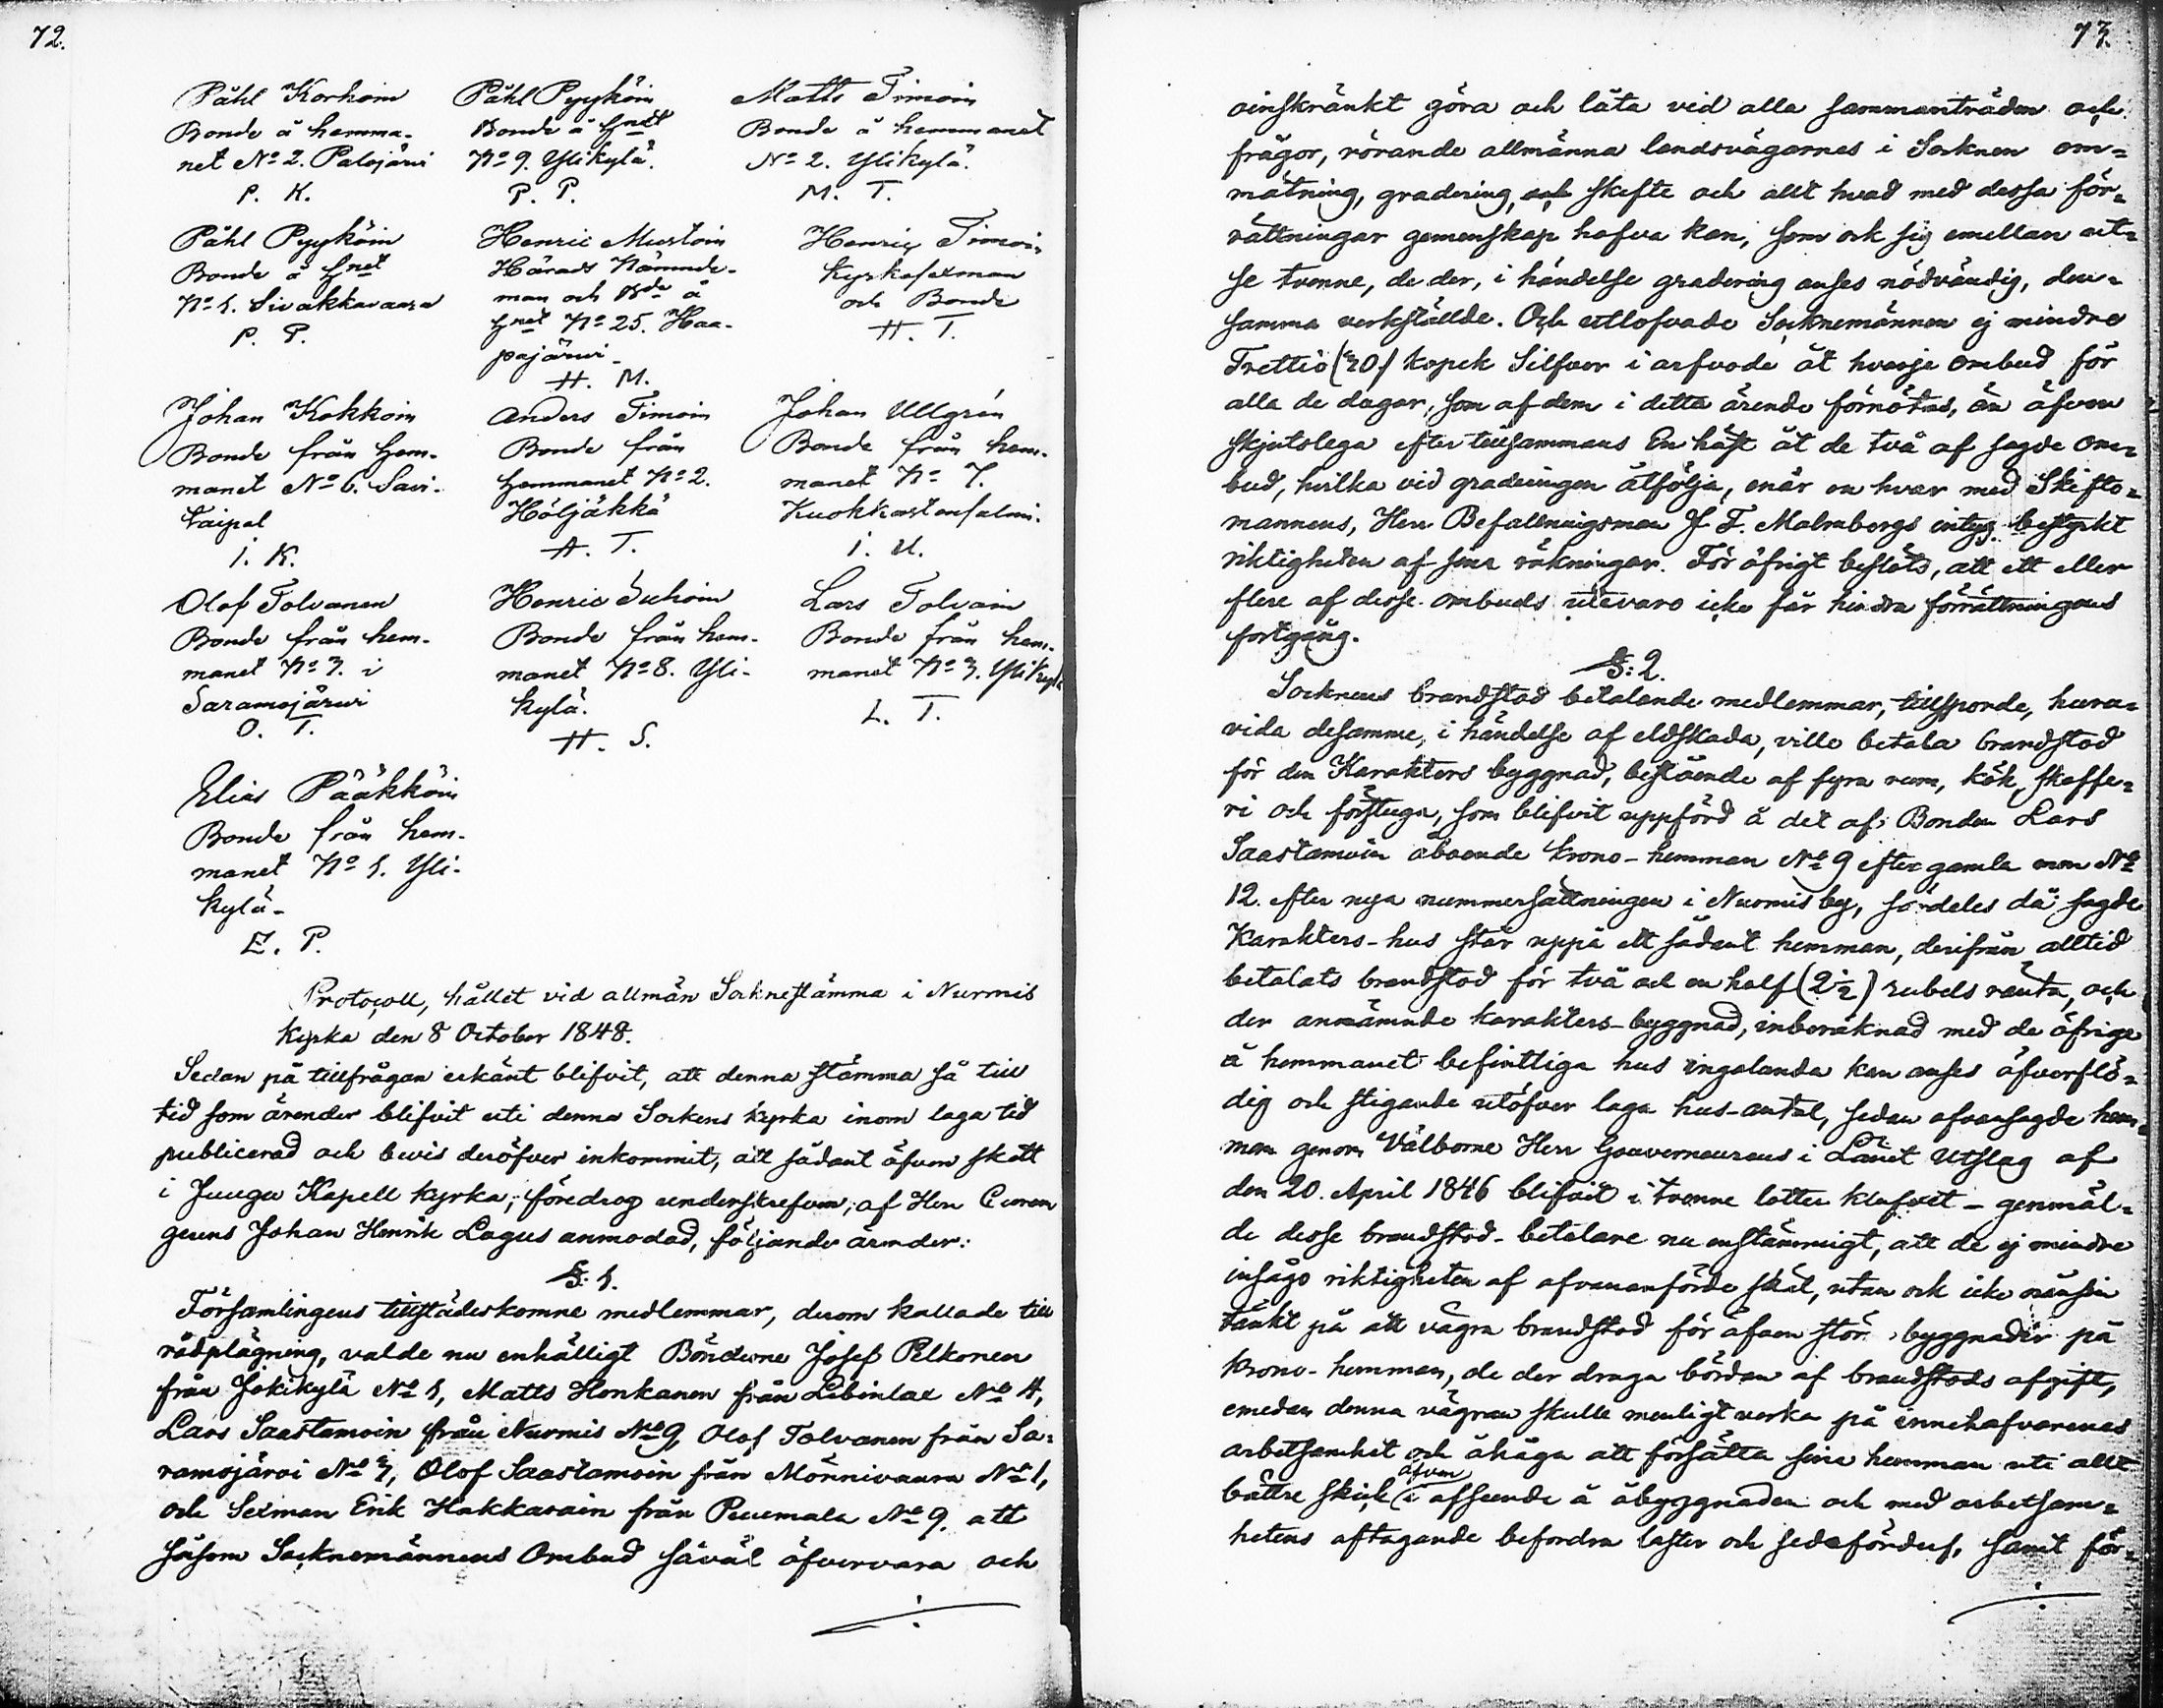 72.
Påhl Korhoin
Bonde å hemma-
net No 2. Palojärvi
P. K.
Påhl Pyyköin
Bonde å Hnet
No 9. Ylikylä.
P. P.
Matts Timoin
Bonde å hemmanet
No 2. Ylikylä.
M. T.
Påhl Pyyköin
Bonde å Hnet
No 1. Sivakkavaara
P. P.
Henric Mustoin
Härads Nämnde-
man och Bde å
Hnet No 25. Haa-
pajärvi
H. M.
Henric Timoin
Kyrkosexman
och Bonde
H. T.
Johan Kokkoin
Bonde från Hem-
manet No 6. Savi-
kaipal
I. K.
Anders Timoin
Bonde från
Hemmanet No 2.
Höljäkkä
A. T.
Johan Ullgrén
Bonde från hem-
manet No 7.
Kuokkastensalmi.
I. U.
Olof Tolvanen
Bonde från hem-
manet No 3. i
Saramojärvi
O. T.
Henric Suhoin
Bonde från hem-
manet No 8. Yli-
kylä.
H. S.
Lars Tolvain
Bonde från hem-
manet No 3. Ylikylä
L. T.
Elias Pääkköin
Bonde från hem-
manet No 1. Yli-
kylä-
E. P.
Protocoll, hållet vid allmän Socknestämma i Nurmis
Kyrka den 8 October 1848.
Sedan på tillfrågan erkänt blifvit, att denna stämma så till
tid som ärender blifvit uti denna Sockens Kyrka inom laga tid
publicerad och bevis deröfver inkommit, att sådant äfven skett
i Juuga Kapell kyrka; föredrog underskrefven, af Herr Curam
gerens Johan Henrik Lagus anmodad, följande ärender:
§: 1.
Församlingens tillstädeskomne medlemmar, derom kallade till
rådplägning, valde nu enhälligt Bönderne Josef Pelkonen
från Jokikylä No 1, Matts Honkanen från Libinlax No 4,
Lars Saastamoin från Nurmis No 9, Olof Tolvanen från Sa-
ramojärvi No 3, Olof Saastamoin från Mönnivaara No 1,
och Sexman Erik Hakkarain från Puumala No 9. att
såsom Socknemännens Ombud såväl öfvervara och
73.
oinskränkt göra och låta vid alla sammanträden och
frågor, rörande allmänna landsvägarnes i Socknen om-
mätning, gradering, och skefte och allt hvad med dessa för-
rättningar gemenskap hafva kan, som ock sig emellan ut-
se tvenne, de der, i händelse gradering anses nödvändig, den-
samma verkställde. Och utlofvade Socknemännen ej mindre
Trettio (30) kopek Silfver i arfvode åt hvarje ombud för
alla de dagar, som af dem i detta ärende förnötas, än äfven
skjutslega efter tillsammans En häst åt de två af sagde om-
bud, hvilka vid graderingen åtfölja, enär en hvar med Skifts-
mannens, Herr Befallningsman J F. Malmbergs intyg bestyrkt
riktigheten af sina räkningar. För öfrigt beslöts, att ett eller
flere af desse ombuds utevaro icke får hindra förrättningens
fortgång.
§: 2.
Socknens brandstod betalende medlemmar, tillsporde, huru-
vida desamme, i händelse af eldskada, ville betala brandstod
för den Karakters byggnad, bestående af fyra rum, kök, skaffe-
ri och förstuga, som blifvit uppförd å det af Bonden Lars
Saastamoin åboende krono-hemman No 9 efter gamla men No
12. efter nya nummersättningen i Nurmis by, särdeles då sagde
Karakters-hus står uppå ett sådant hemman, derifrån alltid
betalats brandstod för två och en half (2½) rubels ränta, och
der anmämnde karakters-byggnad, inberäknad med de öfrige
å hemmanet befintliga hus ingalunda kan anses öfverflö-
dig och stigande utöfver laga hus-antal, sedan ofvansagde hem-
man genom Välborne Herr Gouverneurens i Länet Utslag af
den 20. April 1846 blifvit i tvenne lotter klufvet - genmäl-
de desse brandstod-betalare nu enstämmigt, att de ej mindre
insågo riktigheten af ofvananförde skäl, utan ock icke nånsin
tänkt på att vägra brandstod för äfven stör byggnader på
krono-hemman, de der draga bördan af brandstods afgift,
emedan denna vägran skulle menligt verka på innehafvarenas
arbetsamhet och åhåga att försätta sina hemman uti allt
bättre skick äfven i afseende å åbyggnaden och med arbetsam-
hetens aftagande befordra laster och sedefördersf, samt för-